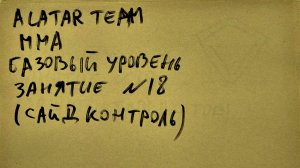 ALATAR TEAM
MMA
БАЗОВЫЙ УРОВЕНЬ
ЗАНЯТИЕ №18
(САЙД КОНТРОЛЬ)